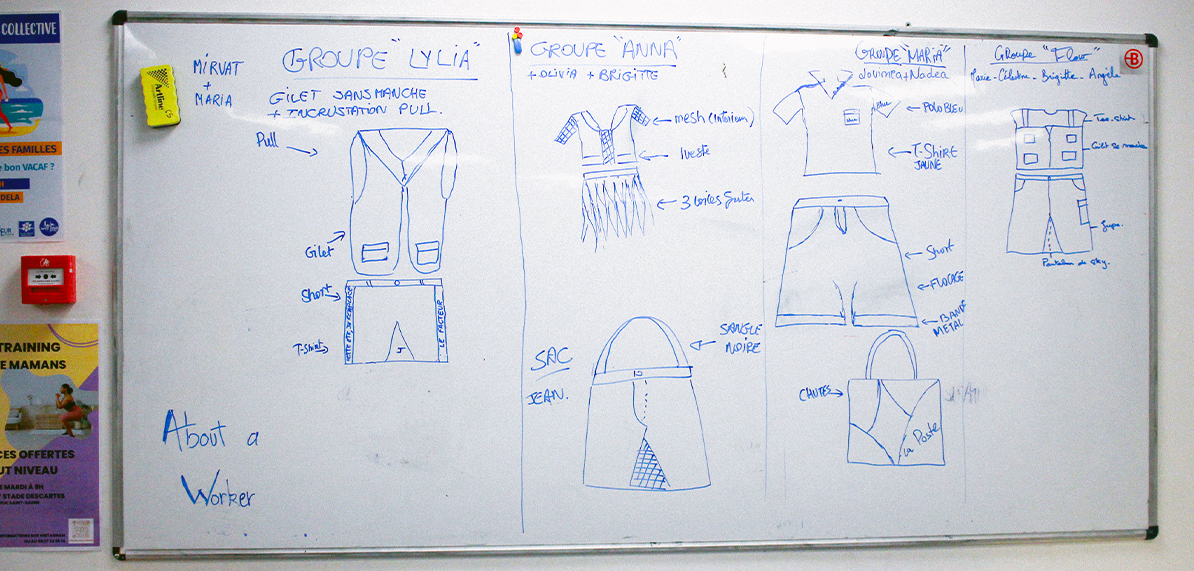 COLLECTIVE
ES FAMILLES
e bon VACAF ?
DELA
TRAINING
E MAMANS
CES OFFERTES
UT NIVEAU
E MARDI À 9H
STADE DESCARTES
Artline
MIRVAT
+
MARIA
GROUPE "LYLIA"
GILET SANS MANCHE
+ INCRUSTATION PULL.
Pull
Gilet
Short
T-Shirt
LE FACTEUR
About a
Worker
GROUPE "ANNA"
+ OLIVIA + BRIGITTE
mesh (intérieur)
Veste
SAC
JEAN.
SANGLE
NOIRE
GROUPE "MARIA"
Jovimea + Nadea
POLO BLEU
T-SHIRT
JAUNE
Short
FLOCAGE
BANDE
METAL
CHUTES
La Poste
Groupe "Flow"
Brigitte - Angela
Tee-shirt
Jupe.
Pantalon de sky.
B